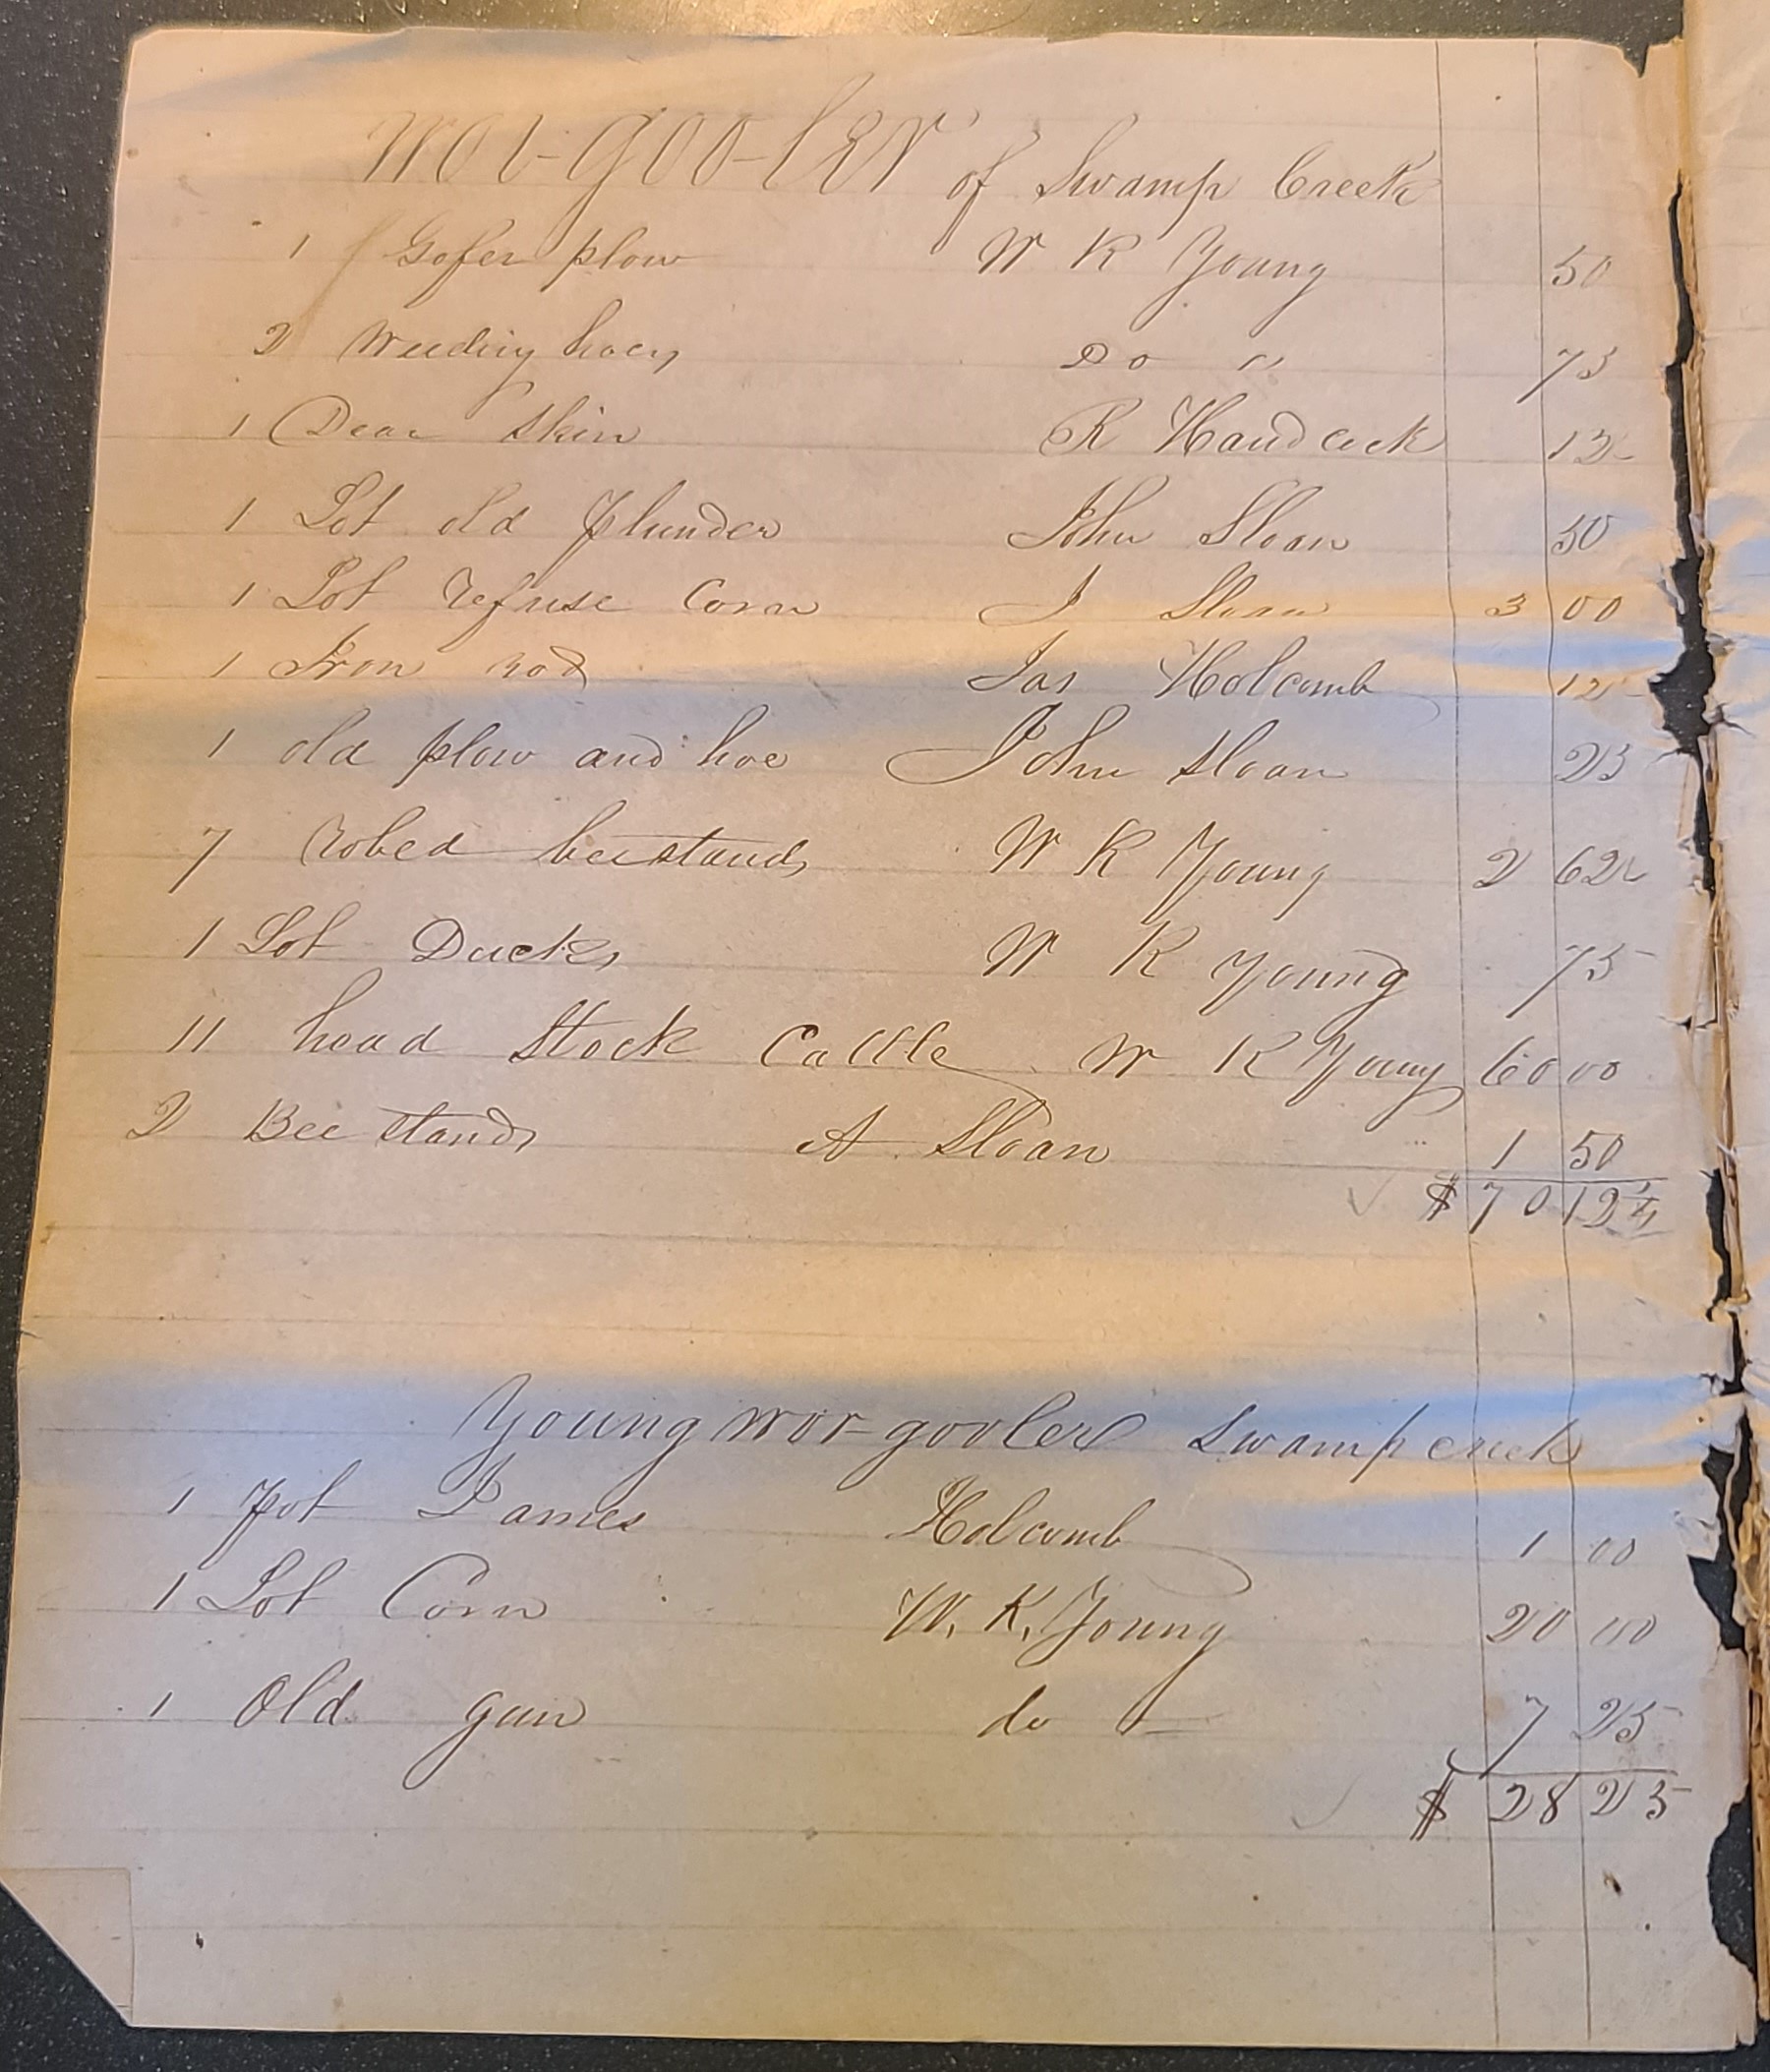 Wor-goo-ler of Swamp Creek
1 Gofer plow W K Young 50
2 Weeding hoes Do " 75
1 Dear skin R Handcock 12
1 Lot old plunder John Sloan 50
1 Lot refuse Corn J Sloan 3 00
1 Iron rod Jas Holcomb 12
1 old plow and hoe John Sloan 25
7 robed beestands W K Young 2 62
1 Lot Ducks W K Young 75
11 head Stock Cattle W K Young 60 00
2 Bee stands A Sloan 1 50
$ 70 12
Young wor-gooler Swamp creek
1 pot James Holcomb 1 00
1 Lot Corn W. K. Young 20 00
1 Old gun do 7 25
$ 28 25